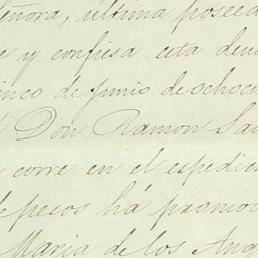 Señora, última poseed
e y confiesa esta deu
inco de Junio de ochoci
Don Ramon Sa
corre en el espedie
de pesos há promo
Maria de los Ang